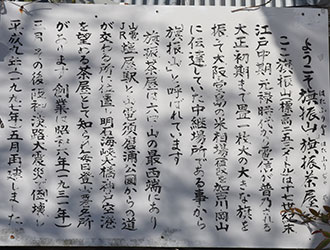 ようこそ旗振山 旗振茶屋へ
はたふりやま はたふりぢゃや
ここ旗振山標高二五三メートルは十七世紀末
江戸中期元禄時代から電信が普及される
大正初期まで畳一枚大の大きな旗を
振って大阪堂島の米相場を加古川岡山
に伝達していた中継場所である事から
旗振山と呼ばれています
旗振茶屋は六甲山の最西端にあり
JR塩屋駅と山電須磨浦公園からの道
が交わる所に位置し明石海峡大橋や淡路
を望める茶屋として知られ毎日登山登録所
があります 創業は昭和六年(一九三一年)
その後阪神淡路大震災で倒壊し
平成九年(一九九七年)五月再建しました